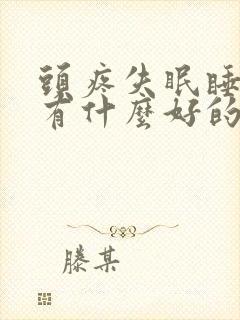 頭疼失眠睡
有什麼好的
滕某